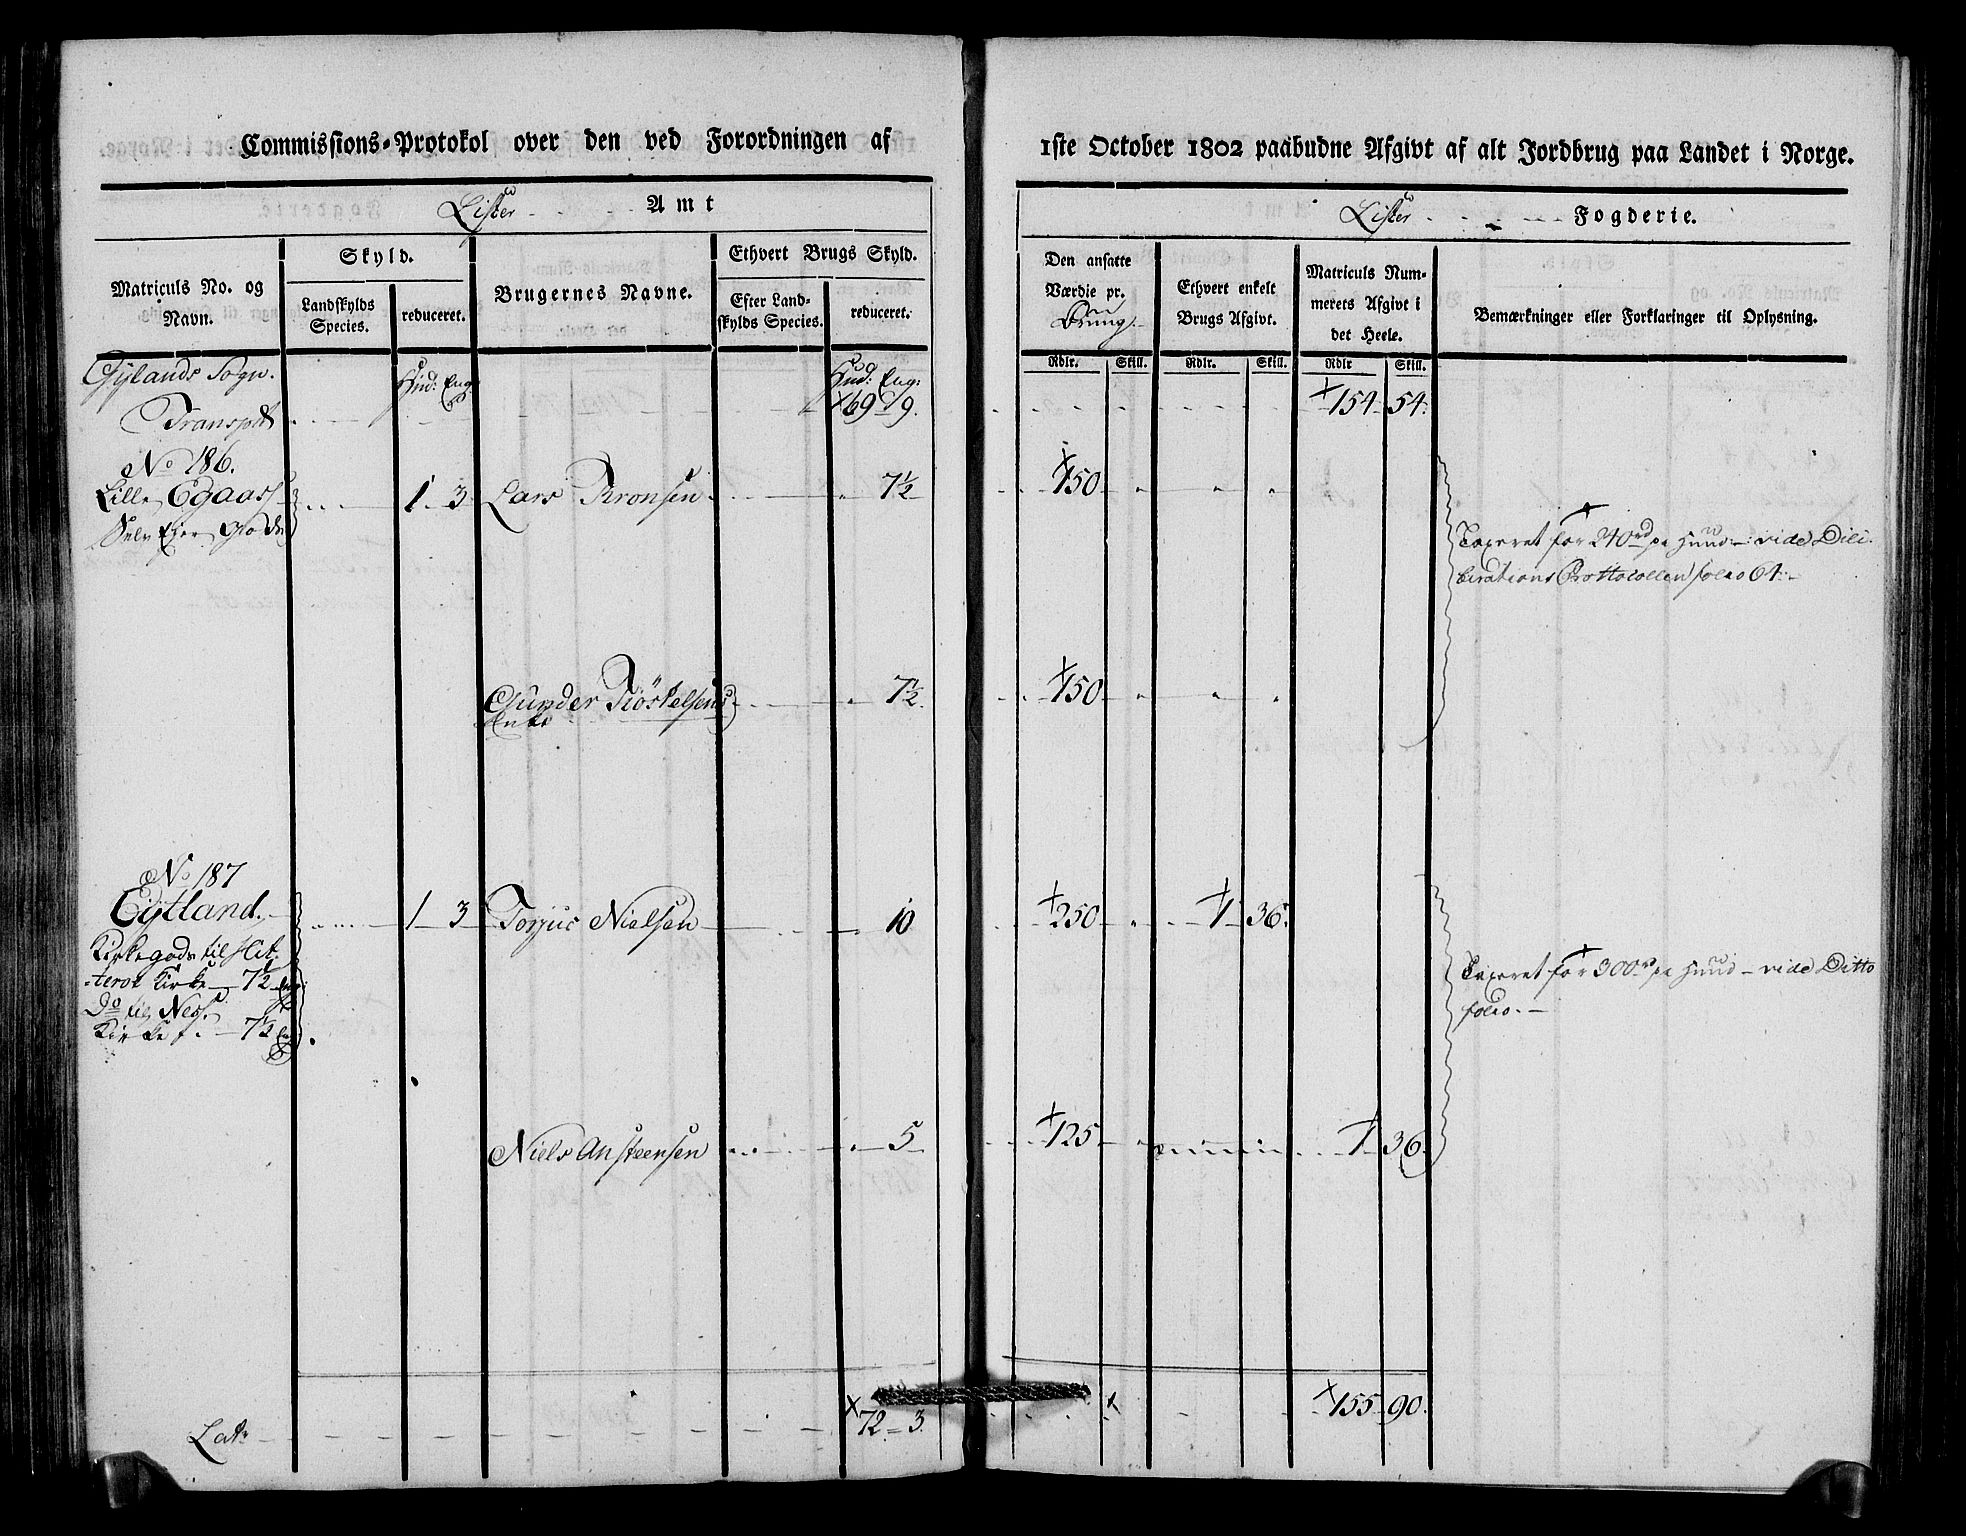 Commissions-Protokol over den ved Forordningen af
1ste October 1802 paabudne Afgivt af alt Jordbrug paa Landet i Norge.
Lister Amt
Lister Fogderie.
Matriculs No. og Navn.
Skyld.
Landskylds Species.
reduceret.
Brugernes Navne.
Ethvert Brugs Skyld.
Efter Landskylds Species.
reduceret.
Den ansatte Værdie pr. Brug
Ethvert enkelt Brugs Afgivt.
Matriculs Nummerets Afgivt i det Heele.
Bemærkninger eller Forklaringer til Oplysning.
Rdlr. Skill. Rdlr. Skill. Rdlr Skill.
Gylands Sogn.
Hud: Eng: Hud: Eng:
Transpt 69 9. 154 54.
No 186.
Lille Egaas 1 3 Lars Tronsen 7½ 150
Selv Ejer Gods
Taxeret for 240 rd pr Huud vide Deli-
berations Prottocollen folio 64.
Gunder Tiöstelsens 7½ 150
Enke
No 187
Eytland. 1 3 Torjus Nielsen 10 250 1 36
Kirkegods til Hit-
terøe Kirke 7½ Eng
Taxeret for 300 rd pr Huud vide Ditto
folio.
Do til Nes
Kirke 7½ Eng
Niels Ansteensen 5 125 1 36
Lat. 72 3. 155 90.